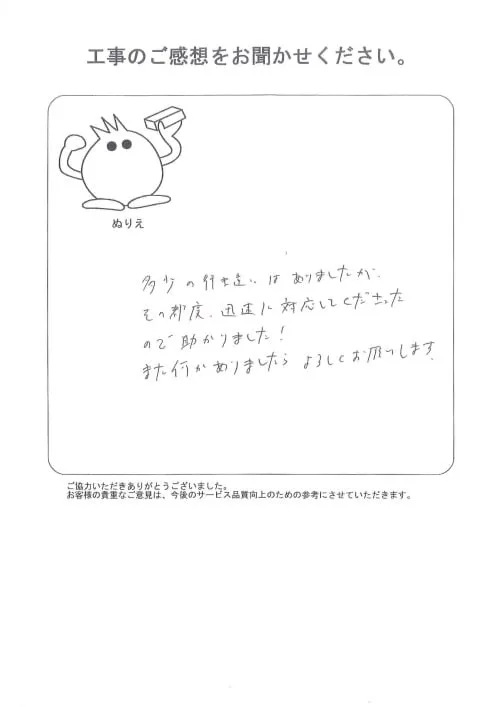 工事のご感想をお聞かせください。
ぬりえ
多少の行き違いはありましたが、
その都度、迅速に対応してくださった
ので助かりました!
また何かありましたらよろしくお願いします。
ご協力いただきありがとうございました。
お客様の貴重なご意見は、今後のサービス品質向上のための参考にさせていただきます。